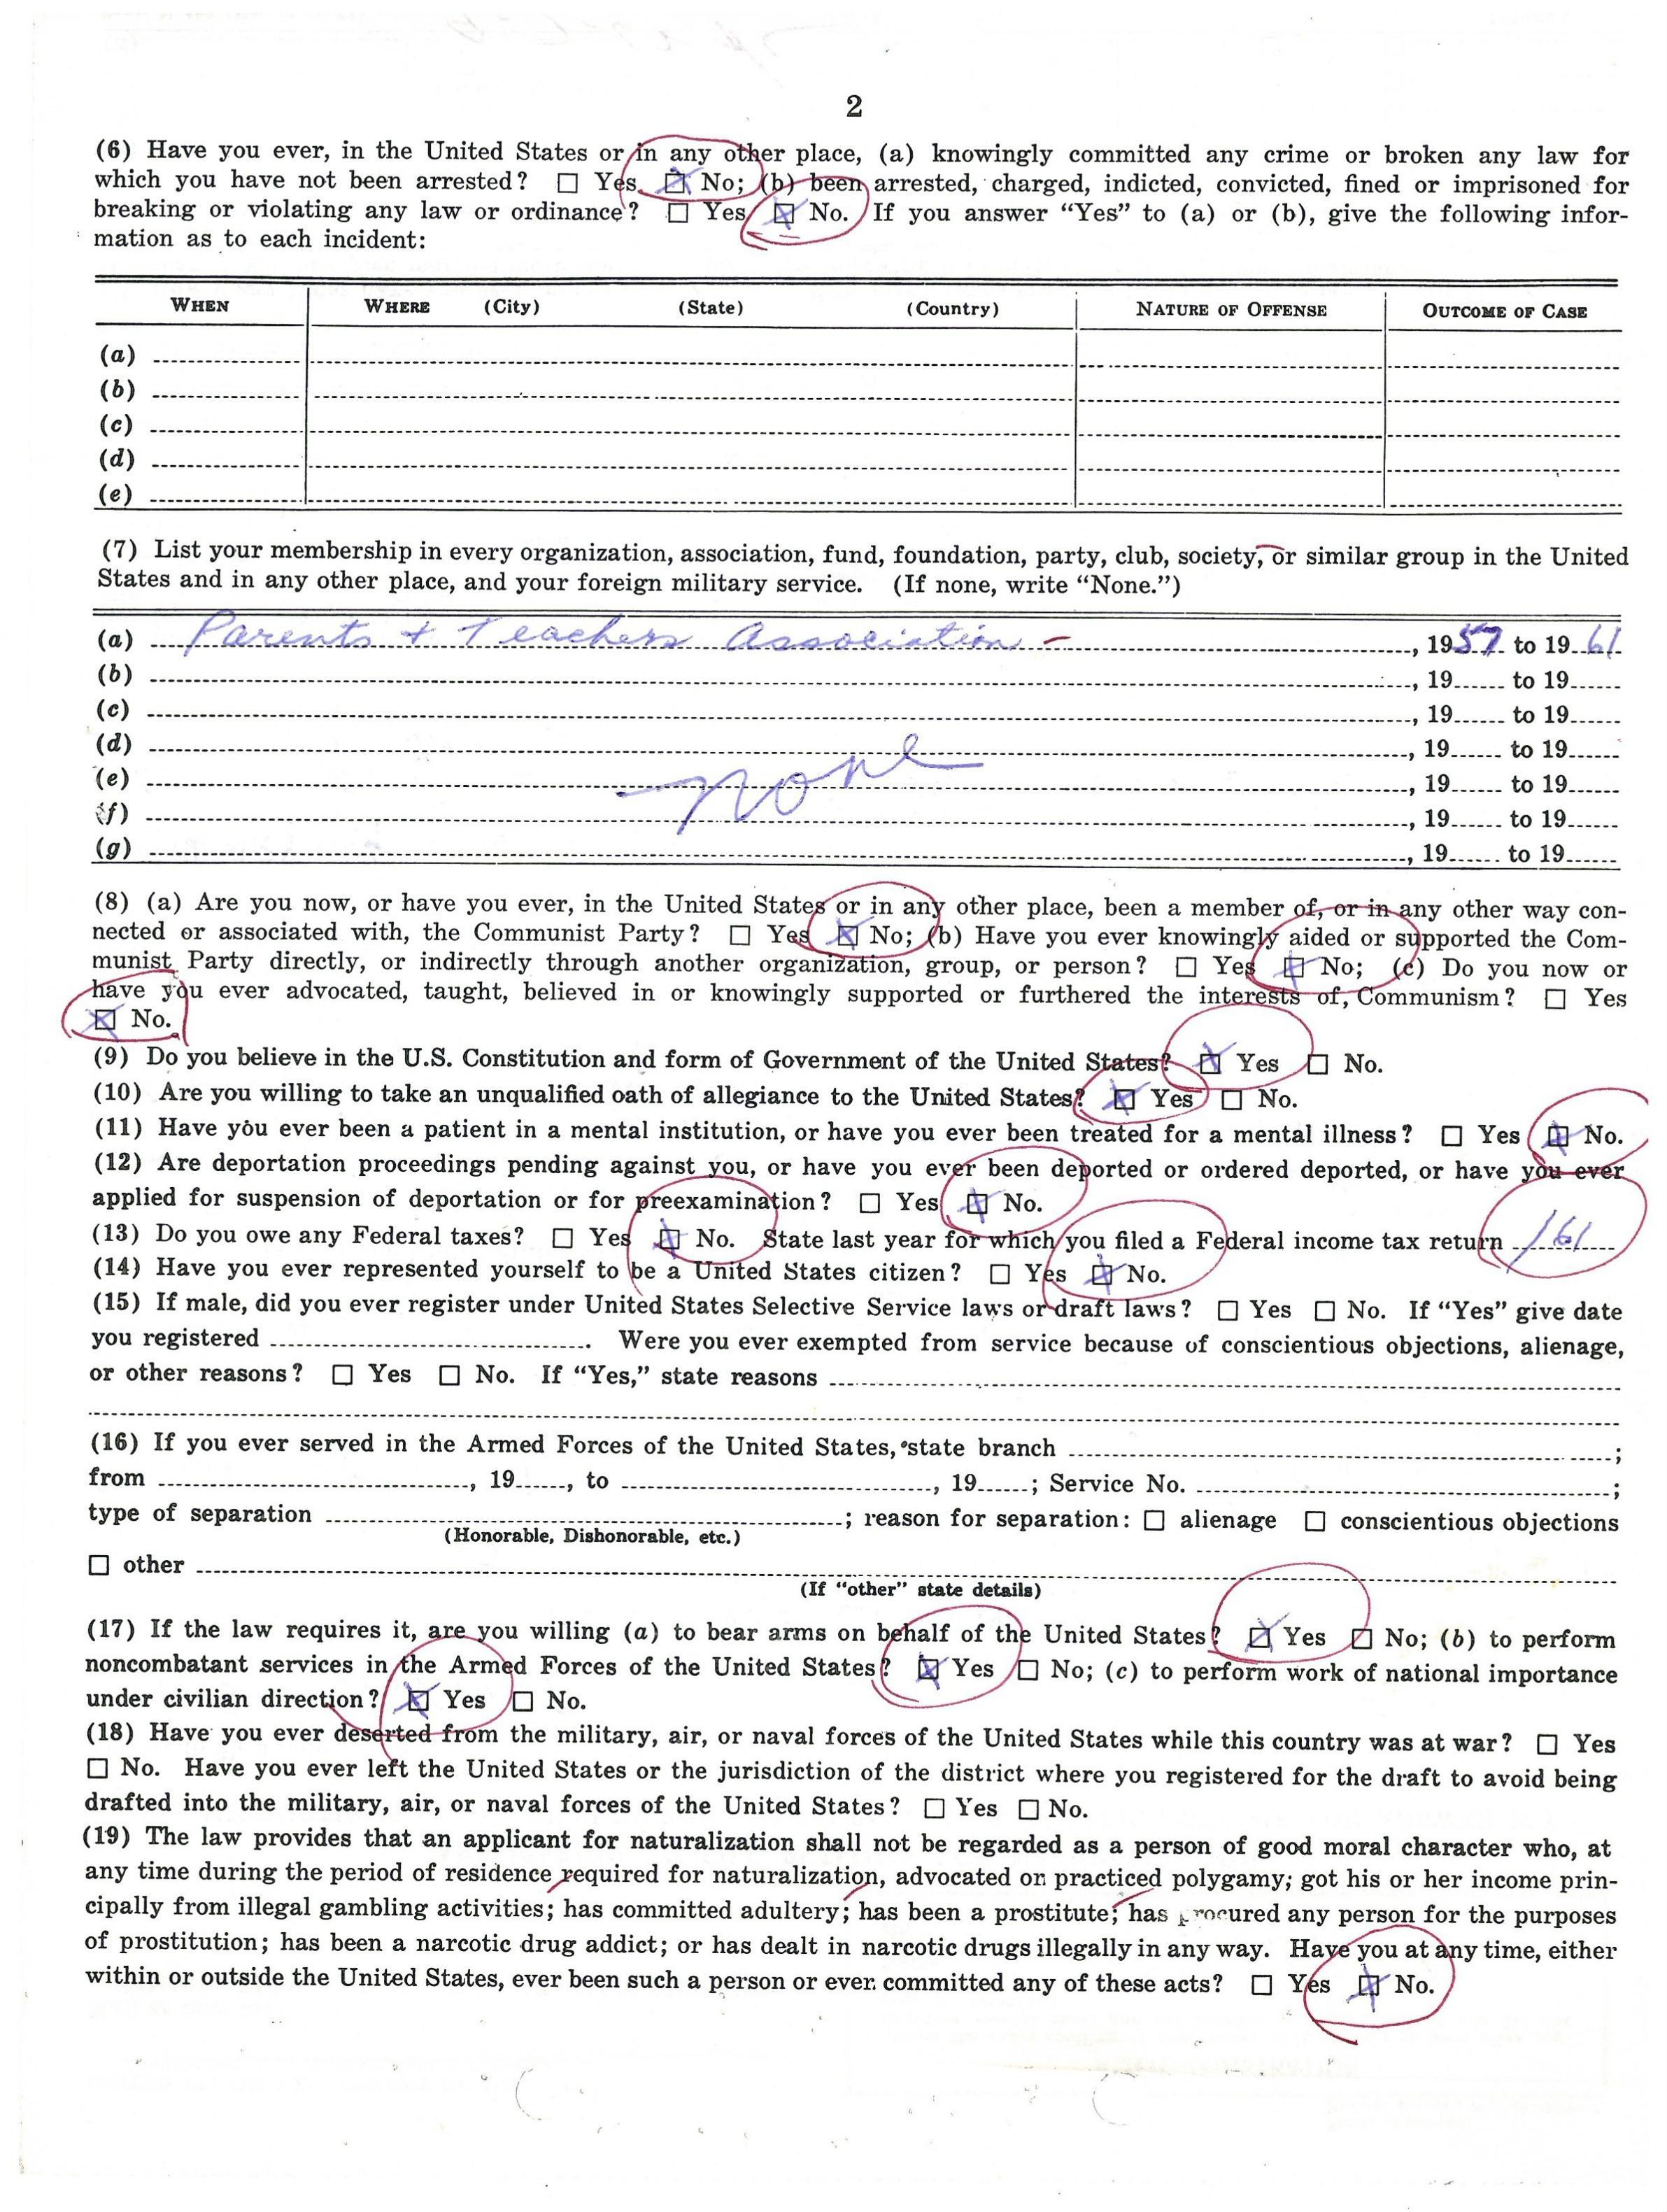 2
(6) Have you ever, in the United States or in any other place, (a) knowingly committed any crime or broken any law for
which you have not been arrested? ☐ Yes ☒ No; (b) been arrested, charged, indicted, convicted, fined or imprisoned for
breaking or violating any law or ordinance? ☐ Yes ☒ No. If you answer “Yes” to (a) or (b), give the following infor-
mation as to each incident:
WHEN WHERE (City) (State) (Country) NATURE OF OFFENSE OUTCOME OF CASE
(a)
(b)
(c)
(d)
(e)
(7) List your membership in every organization, association, fund, foundation, party, club, society, or similar group in the United
States and in any other place, and your foreign military service. (If none, write “None.”)
(a) Parents + Teachers Association - , 1957 to 1961
(b) , 19 to 19
(c) , 19 to 19
(d) , 19 to 19
(e) none , 19 to 19
(f) , 19 to 19
(g) , 19 to 19
(8) (a) Are you now, or have you ever, in the United States or in any other place, been a member of, or in any other way con-
nected or associated with, the Communist Party? ☐ Yes ☒ No; (b) Have you ever knowingly aided or supported the Com-
munist Party directly, or indirectly through another organization, group, or person? ☐ Yes ☒ No; (c) Do you now or
have you ever advocated, taught, believed in or knowingly supported or furthered the interests of, Communism? ☐ Yes
☒ No.
(9) Do you believe in the U.S. Constitution and form of Government of the United States? ☒ Yes ☐ No.
(10) Are you willing to take an unqualified oath of allegiance to the United States? ☒ Yes ☐ No.
(11) Have you ever been a patient in a mental institution, or have you ever been treated for a mental illness? ☐ Yes ☒ No.
(12) Are deportation proceedings pending against you, or have you ever been deported or ordered deported, or have you ever
applied for suspension of deportation or for preexamination? ☐ Yes ☒ No.
(13) Do you owe any Federal taxes? ☐ Yes ☒ No. State last year for which you filed a Federal income tax return /61
(14) Have you ever represented yourself to be a United States citizen? ☐ Yes ☒ No.
(15) If male, did you ever register under United States Selective Service laws or draft laws? ☐ Yes ☐ No. If “Yes” give date
you registered . Were you ever exempted from service because of conscientious objections, alienage,
or other reasons? ☐ Yes ☐ No. If “Yes,” state reasons
(16) If you ever served in the Armed Forces of the United States, state branch ;
from , 19 , to , 19 ; Service No. ;
type of separation ; reason for separation: ☐ alienage ☐ conscientious objections
(Honorable, Dishonorable, etc.)
☐ other
(If “other” state details)
(17) If the law requires it, are you willing (a) to bear arms on behalf of the United States? ☒ Yes ☐ No; (b) to perform
noncombatant services in the Armed Forces of the United States? ☒ Yes ☐ No; (c) to perform work of national importance
under civilian direction? ☒ Yes ☐ No.
(18) Have you ever deserted from the military, air, or naval forces of the United States while this country was at war? ☐ Yes
☐ No. Have you ever left the United States or the jurisdiction of the district where you registered for the draft to avoid being
drafted into the military, air, or naval forces of the United States? ☐ Yes ☐ No.
(19) The law provides that an applicant for naturalization shall not be regarded as a person of good moral character who, at
any time during the period of residence required for naturalization, advocated or practiced polygamy; got his or her income prin-
cipally from illegal gambling activities; has committed adultery; has been a prostitute; has procured any person for the purposes
of prostitution; has been a narcotic drug addict; or has dealt in narcotic drugs illegally in any way. Have you at any time, either
within or outside the United States, ever been such a person or ever committed any of these acts? ☐ Yes ☒ No.